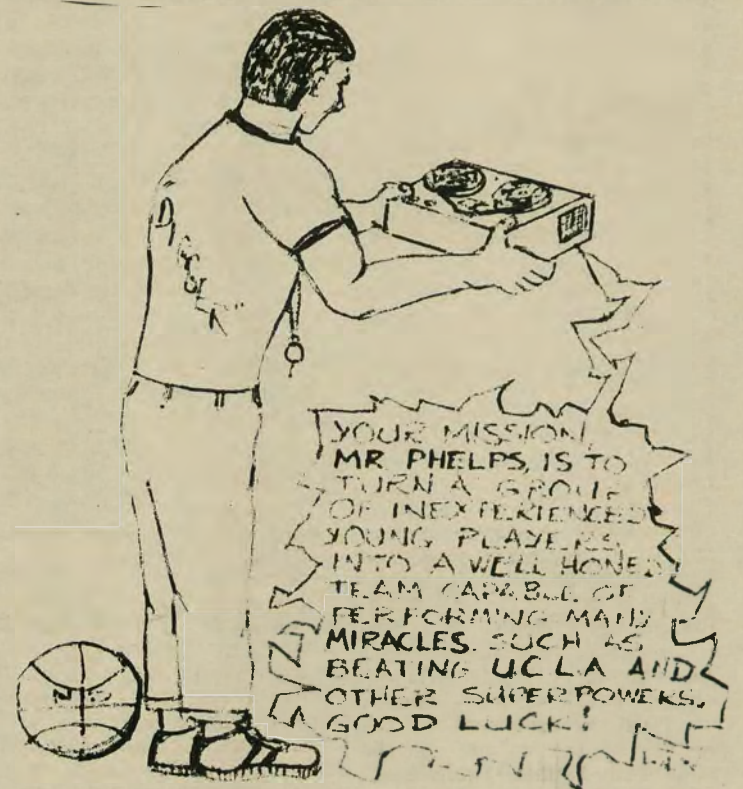 "DIGGER"
YOUR MISSION,
MR PHELPS, IS TO
TURN A GROUP
OF INEXPERIENCED
YOUNG PLAYERS
INTO A WELL HONED
TEAM CAPABLE OF
PERFORMING MANY
MIRACLES SUCH AS
BEATING UCLA AND
OTHER SUPERPOWERS.
GOOD LUCK!
ND